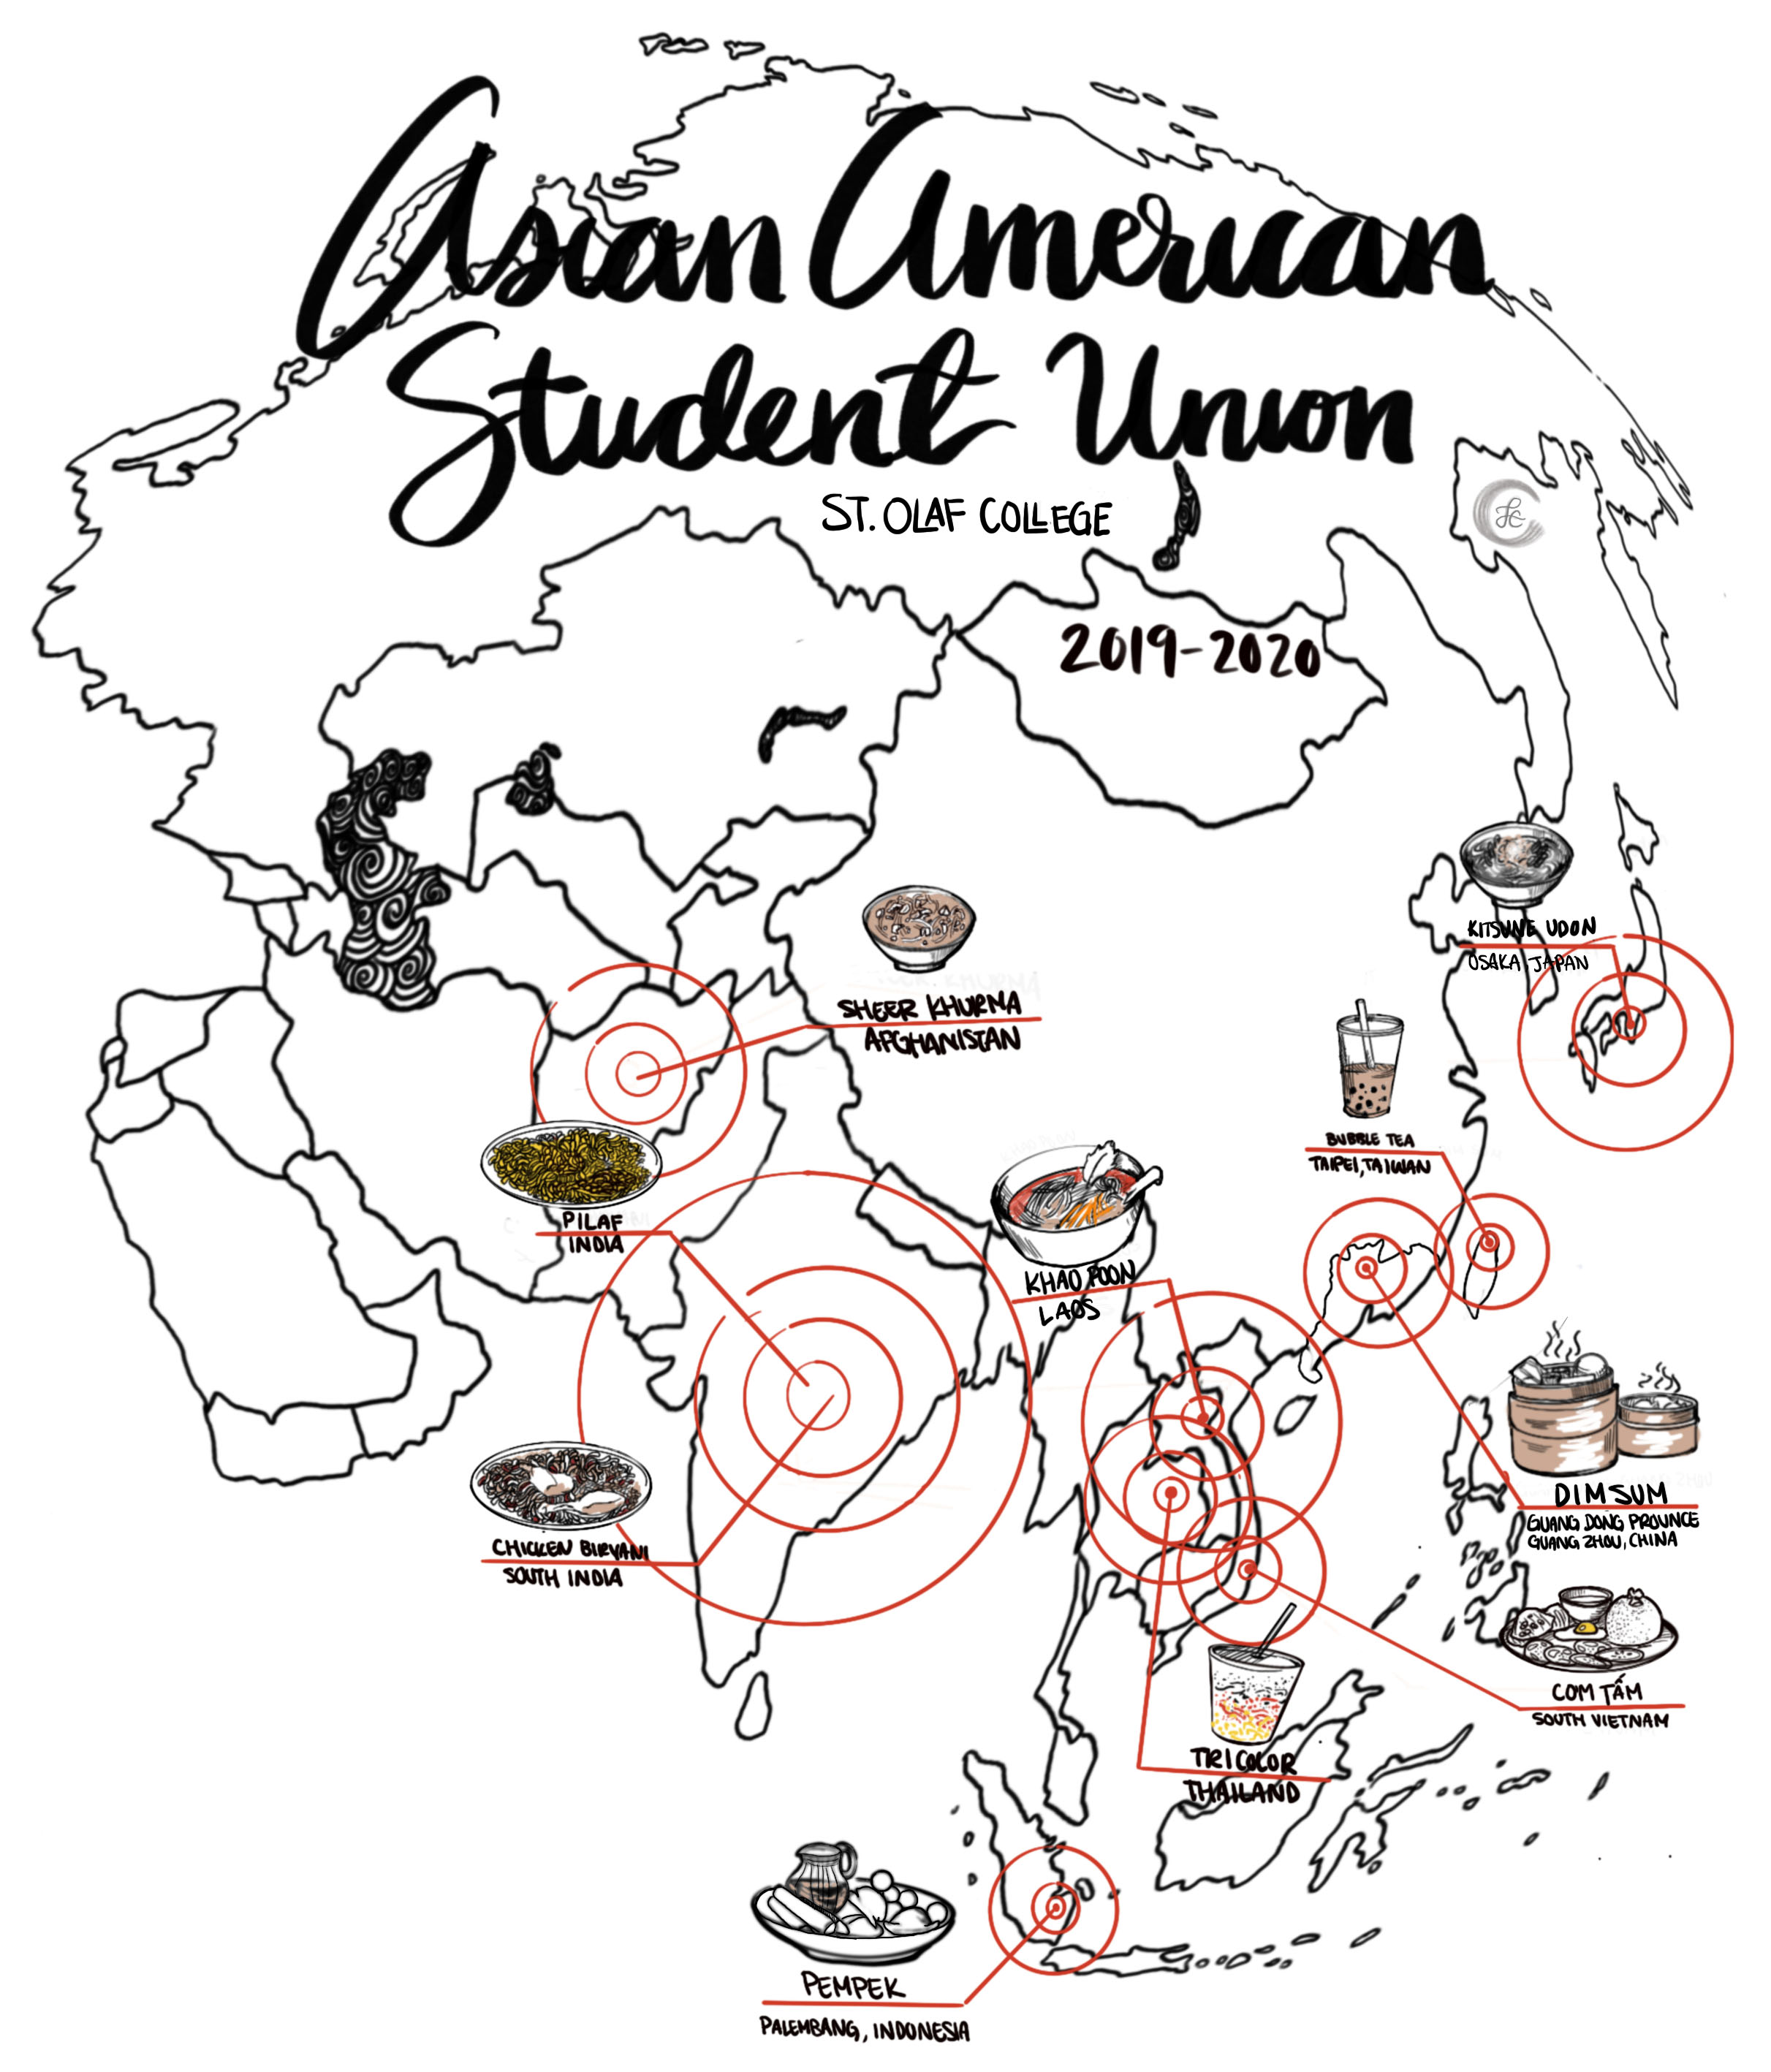 Asian American
Student Union
ST. OLAF COLLEGE
2019-2020
KITSUNE UDON
OSAKA, JAPAN
SHEER KHURMA
AFGHANISTAN
BUBBLE TEA
TAIPEI, TAIWAN
PILAF
INDIA
KHAO POON
LAOS
DIMSUM
GUANG DONG PROVINCE
GUANG ZHOU, CHINA
CHICKEN BIRYANI
SOUTH INDIA
COM TẤM
SOUTH VIETNAM
TRICOLOR
THAILAND
PEMPEK
PALEMBANG, INDONESIA